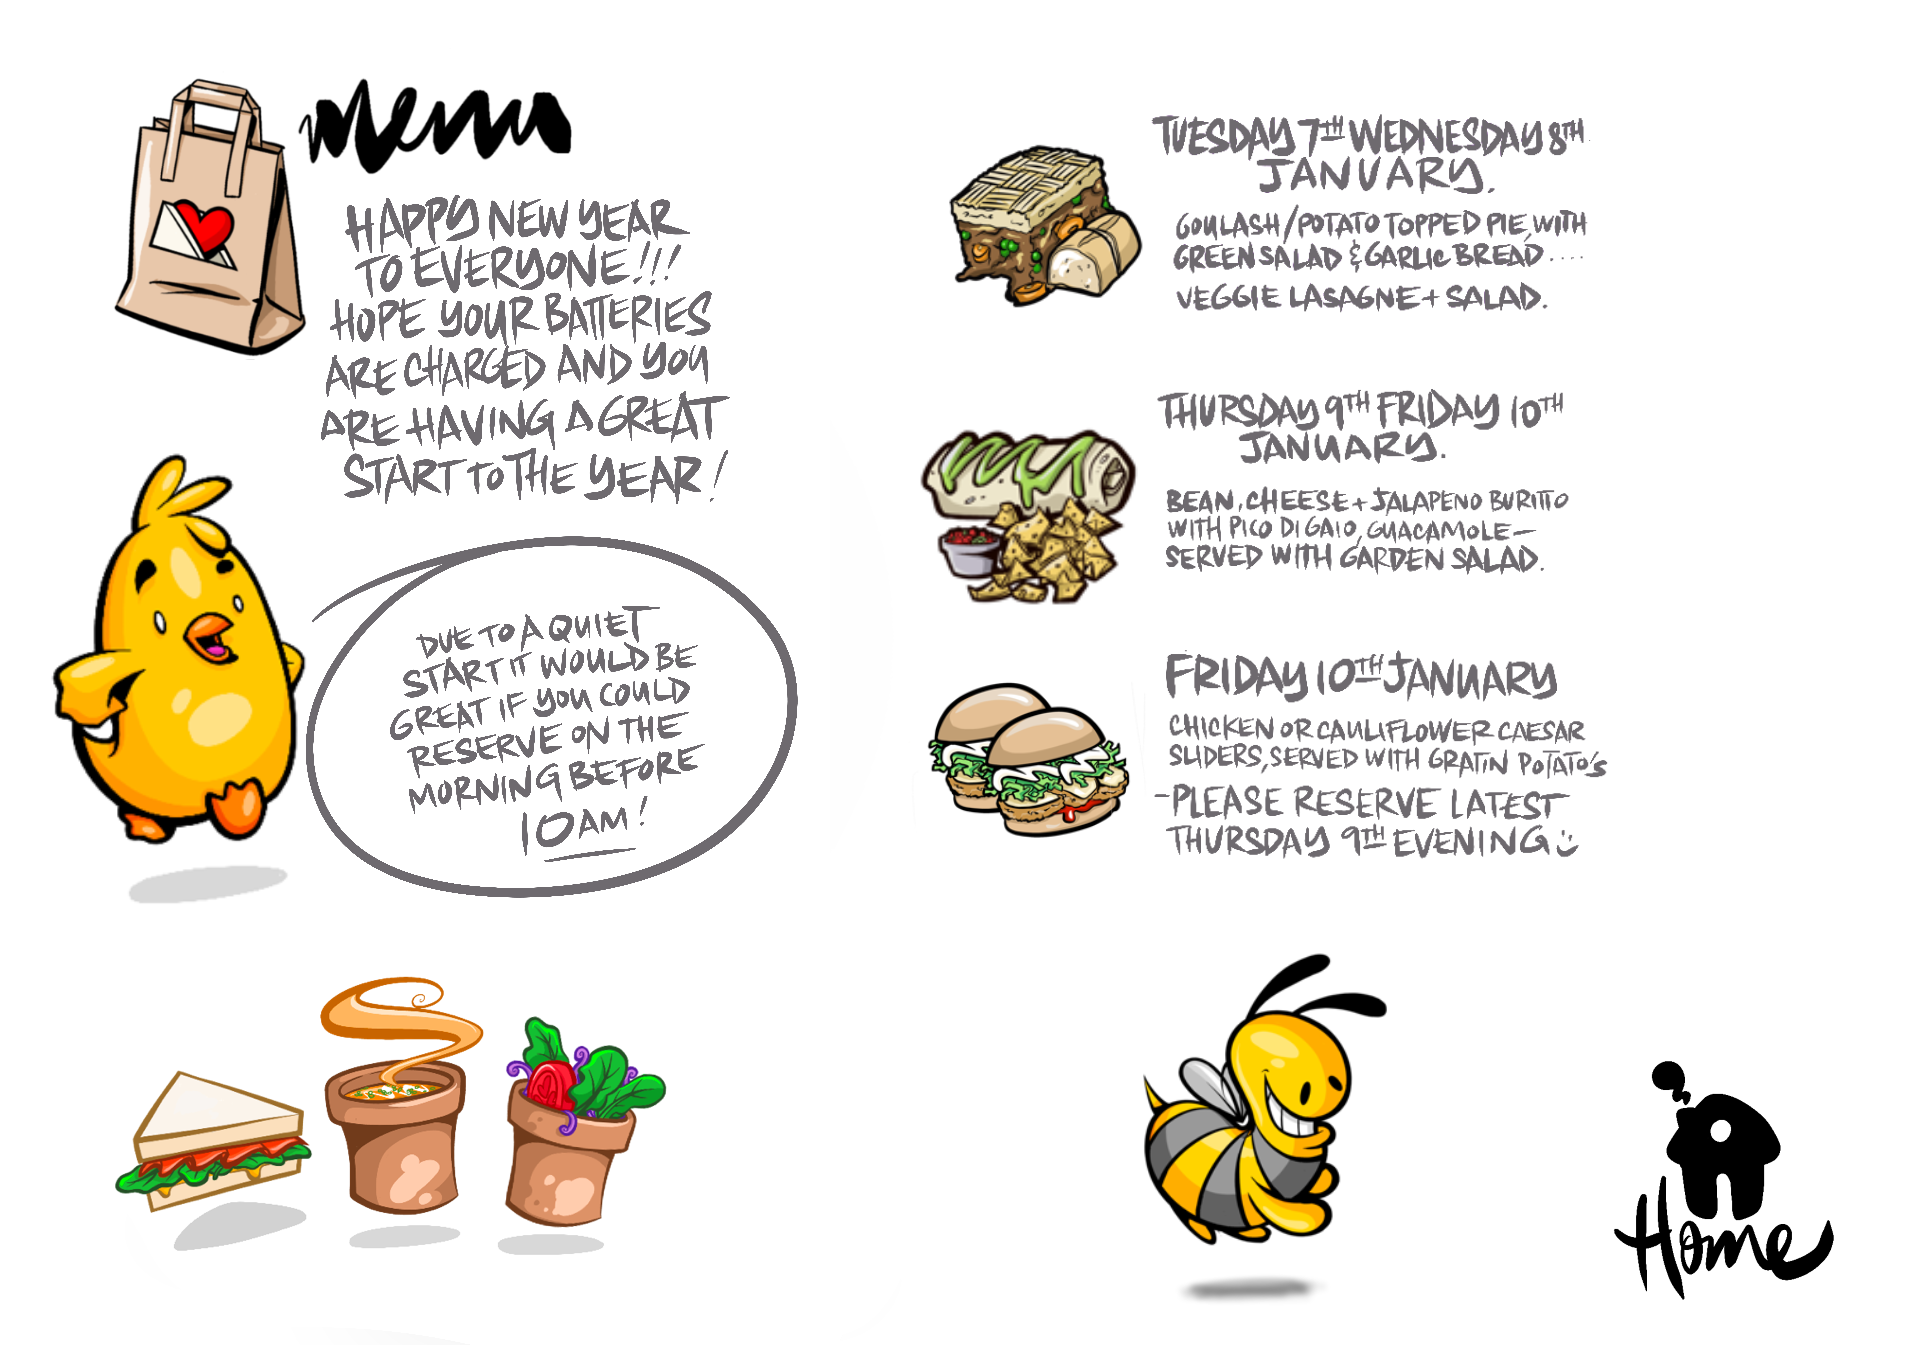 Menu
HAPPY NEW YEAR
TO EVERYONE!!!
HOPE YOUR BATTERIES
ARE CHARGED AND YOU
ARE HAVING A GREAT
START TO THE YEAR!
DUE TO A QUIET
START IT WOULD BE
GREAT IF YOU COULD
RESERVE ON THE
MORNING BEFORE
10AM!
TUESDAY 7TH WEDNESDAY 8TH
JANUARY.
GOULASH/POTATO TOPPED PIE, WITH
GREEN SALAD & GARLIC BREAD....
VEGGIE LASAGNE + SALAD.
THURSDAY 9TH FRIDAY 10TH
JANUARY.
BEAN, CHEESE + JALAPENO BURITTO
WITH PICO DI GAIO, GUACAMOLE—
SERVED WITH GARDEN SALAD.
FRIDAY 10TH JANUARY
CHICKEN OR CAULIFLOWER CAESAR
SLIDERS, SERVED WITH GRATIN POTATO'S
-PLEASE RESERVE LATEST
THURSDAY 9TH EVENING :)
Home